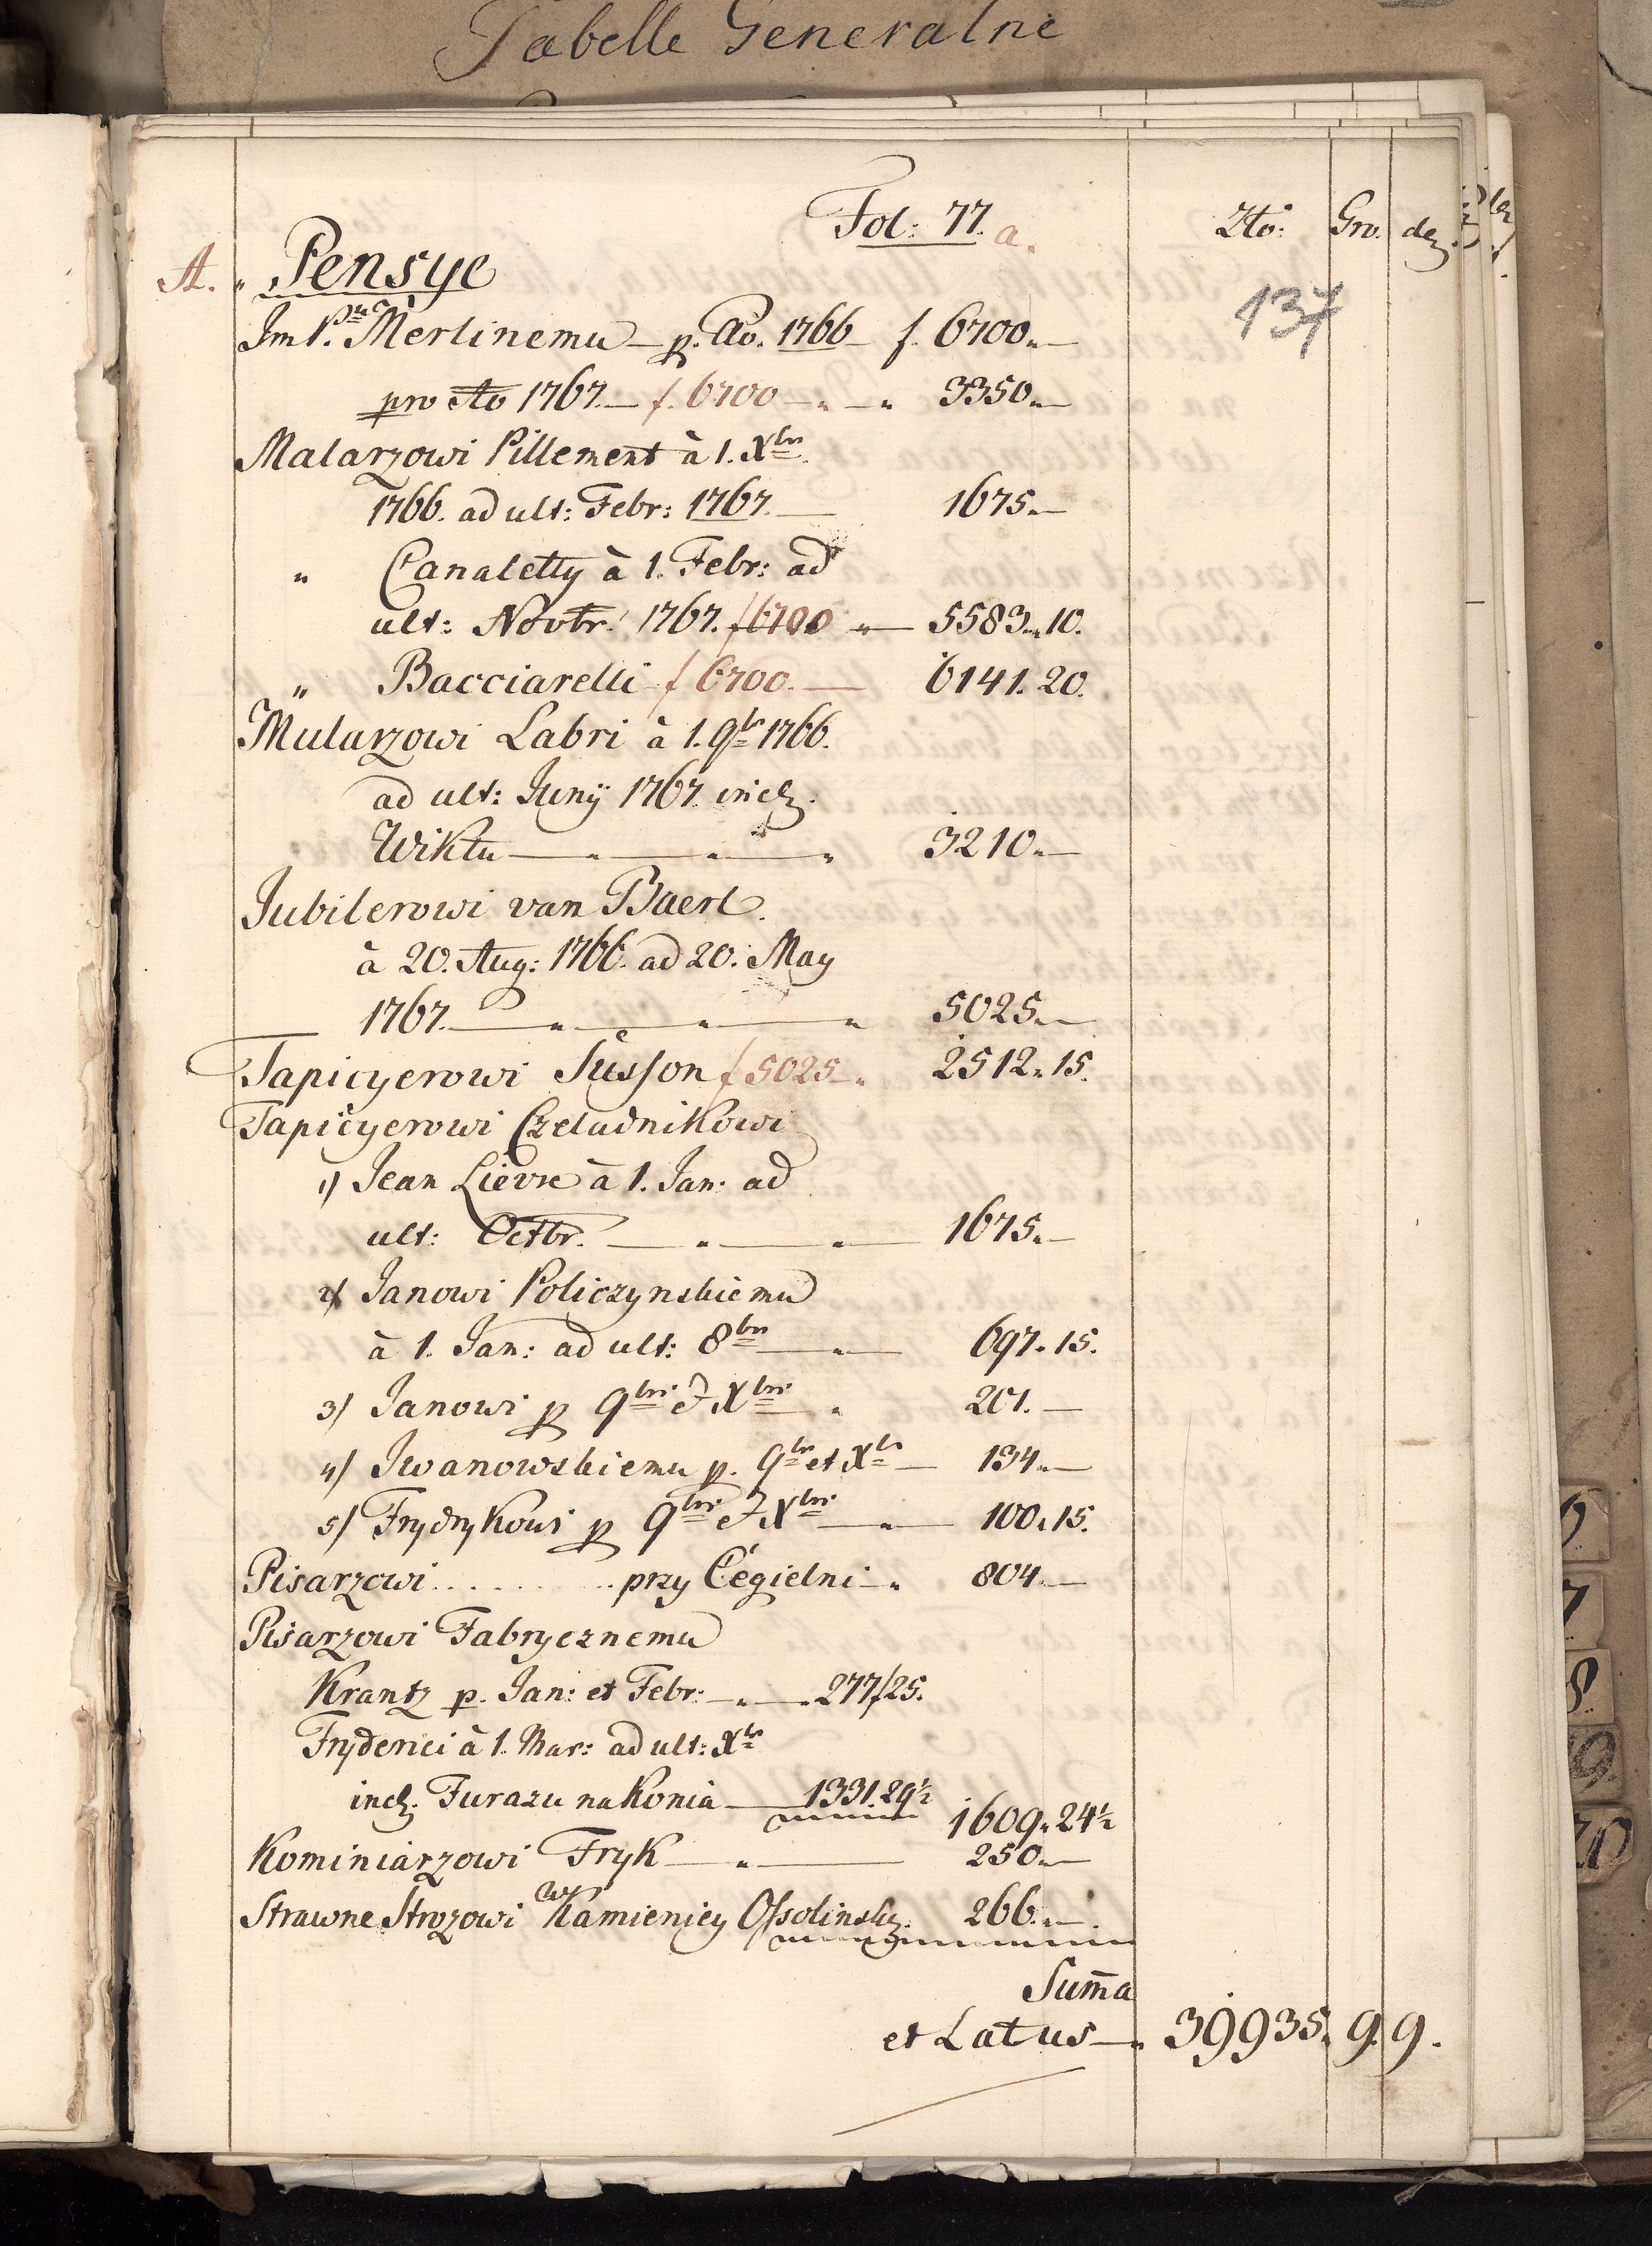 Tabelle Generalne
Fol: 77. a.
Zło: Gro. den.
137
A. " Pensye
Jm P.nu Merlinemu p. Ao. 1766 f. 6700. —
pro Ao 1767. — f. 6700 — " — " 3350. —
Malarzowi Pillement à 1. Xbr.
1766. ad ult: Febr: 1767. — 1675. —
" Canaletty à 1. Febr: ad
ult: Novbr: 1767. f 6700 " — 5583. 10.
" Bacciarelli f 6700. — 6141. 20.
Mularzowi Labri à 1. 9br 1766.
ad ult: Junÿ 1767. incl.
Wiktu — " — " — " 3210. —
Jubilerowi van Baerl.
à 20. Aug: 1766. ad 20. May
1767. — " — " — " 5025. —
Tapicyerowi Süsson f 5025 — " 2512. 15.
Tapicyerowi Czeladnikowi
1) Jean Lievre à 1. Jan: ad
ult: Octbr. — " — " — 1675. —
2) Janowi Policzynskiemu
à 1. Jan: ad ult: 8br — " — 697. 15.
3) Janowi p 9bri et Xbri — " 201. —
4) Iwanowskiemu p. 9br et Xbr — 134. —
5) Frydrykowi p 9bri et Xbri — " — 100. 15.
Pisarzowi . . . . . . . . przy Cegielni — " 804. —
Pisarzowi Fabrycznemu
Krantz p. Jan: et Febr: — " — 277/25.
Fryderici à 1. Mar: ad ult: Xbr
incl. Furazu na Konia — 1331. 29½
1609. 24½
Kominiarzowi Fryk — " — 250. —
Strawne Strozowi w Kamienicy Ossolinsk. 266. —
Suma
et Latus — " 39935. 9. 9.